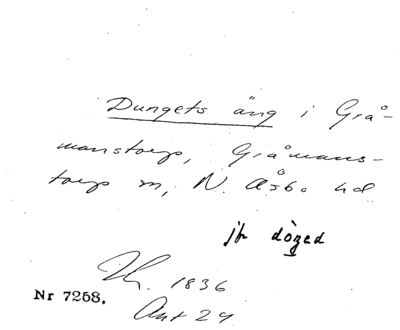 Dungets äng i Grå-
manstorp, Gråmans-
torp sn, N. Åsbo hd
jfr dòzed
1836
Nr 7258.
Akt 24